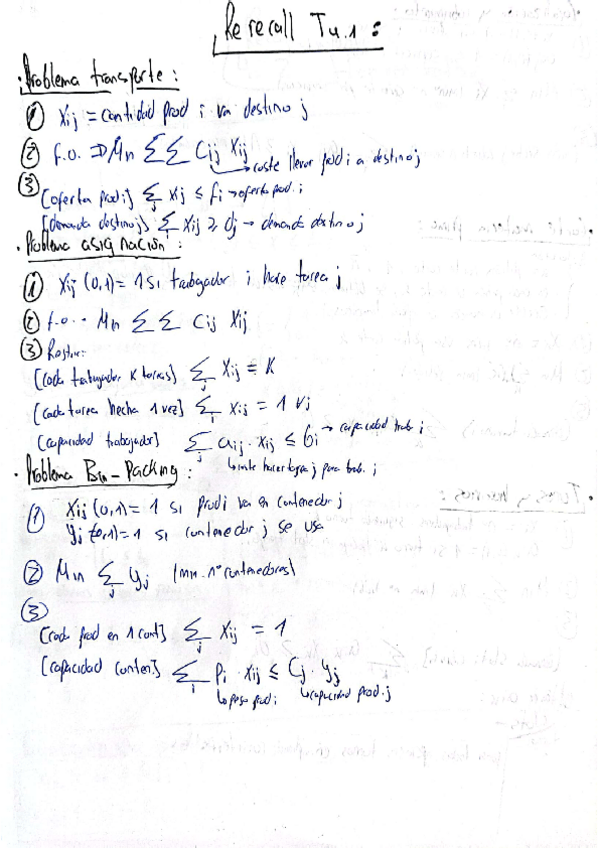 Re recall Tu.1:
· Problema transporte:
① Xij = cantidad prod i va destino j
② f.o. ⇒ Mn ΣΣ Cij Xij
↳ coste llevar prod i a destino j
③
[oferta prod i] Σj xij ≤ fi → oferta prod. i
[demanda destino j] Σi xij ≥ dj → demanda destino j
· Problema asignación:
① Xij (0,1) = 1 si trabajador i hace tarea j
② f.o. - Mn ΣΣ Cij Xij
③ Restr:
[cada trabajador K tareas] Σj Xij = K
[cada tarea hecha 1 vez] Σi Xij = 1 ∀j
[capacidad trabajador] Σj aij · xij ≤ bi → capacidad trab. i
↳ hacer tarea j para trab. i
· Problema Bin-Packing:
① Xij (0,1) = 1 si prod i va en contenedor j
yj (0,1) = 1 si contenedor j se usa
② Mn Σj yj (mn. nº contenedores)
③
[cada prod en 1 cont] Σj Xij = 1
[capacidad conten] Σi Pi · xij ≤ Cj · yj
↳ peso prod i ↳ capacidad prod. j